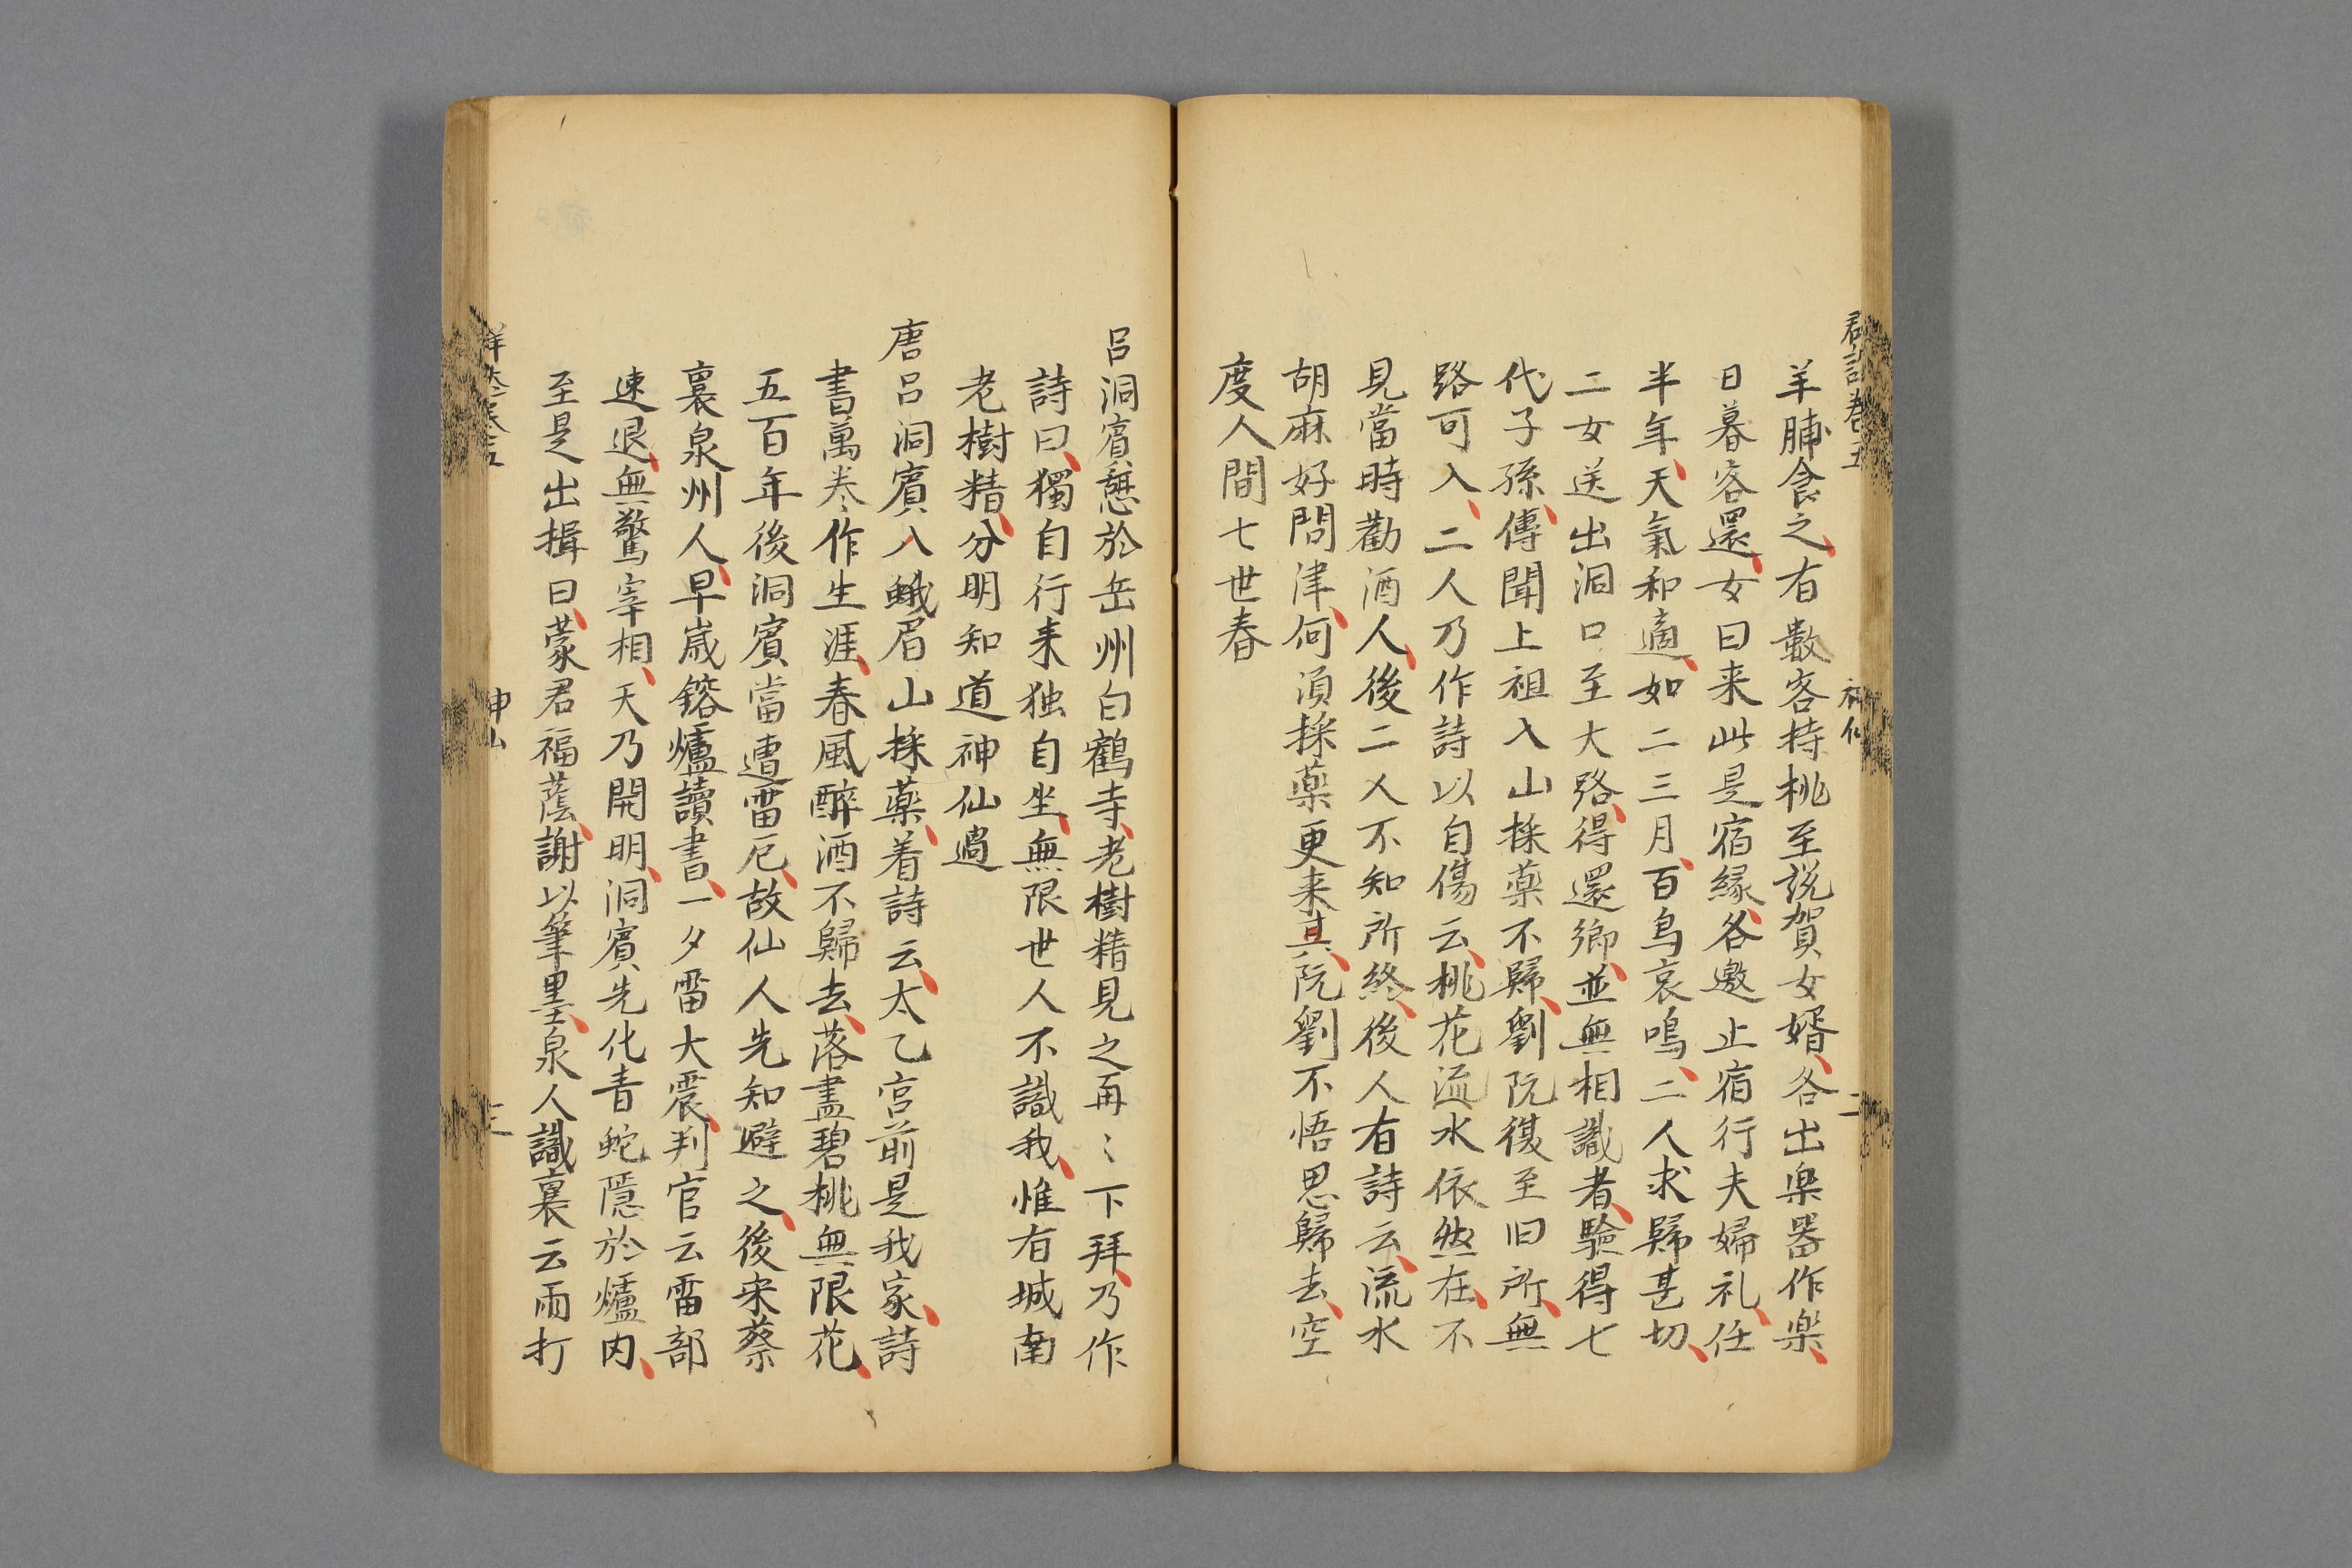 羊脯食之有數客持桃至説賀女婿各出楽器作楽
日暮客還女曰来此是宿縁各邀止宿行夫婦礼任
半年天氣和適如二三月百鳥哀鳴二人求歸甚切
二女送出洞口至大路得還鄉並無相識者驗得七
代子孫傳聞上祖入山採薬不歸劉阮復至旧所無
路可入二人乃作詩以自傷云桃花流水依然在不
見當時勸酒人後二人不知所終後人有詩云流水
胡麻好問津何須採薬更来真阮劉不悟思歸去空
度人間七世春
呂洞賓憇於岳州白鶴寺老樹精見之再〻下拜乃作
詩曰獨自行来独自坐無限世人不識我惟有城南
老樹精分明知道神仙過
唐呂洞賓入蛾眉山採薬着詩云太乙宮前是我家詩
書萬巻作生涯春風醉酒不歸去落盡碧桃無限花
五百年後洞賓當遭雷厄故仙人先知避之後来蔡
襄泉州人早歳鎔爐讀書一夕雷大震判官云雷部
速退無驚宰相天乃開明洞賓先化青蛇隱於爐内
至是出揖曰蒙君福蔭謝以筆墨泉人識襄云雨打